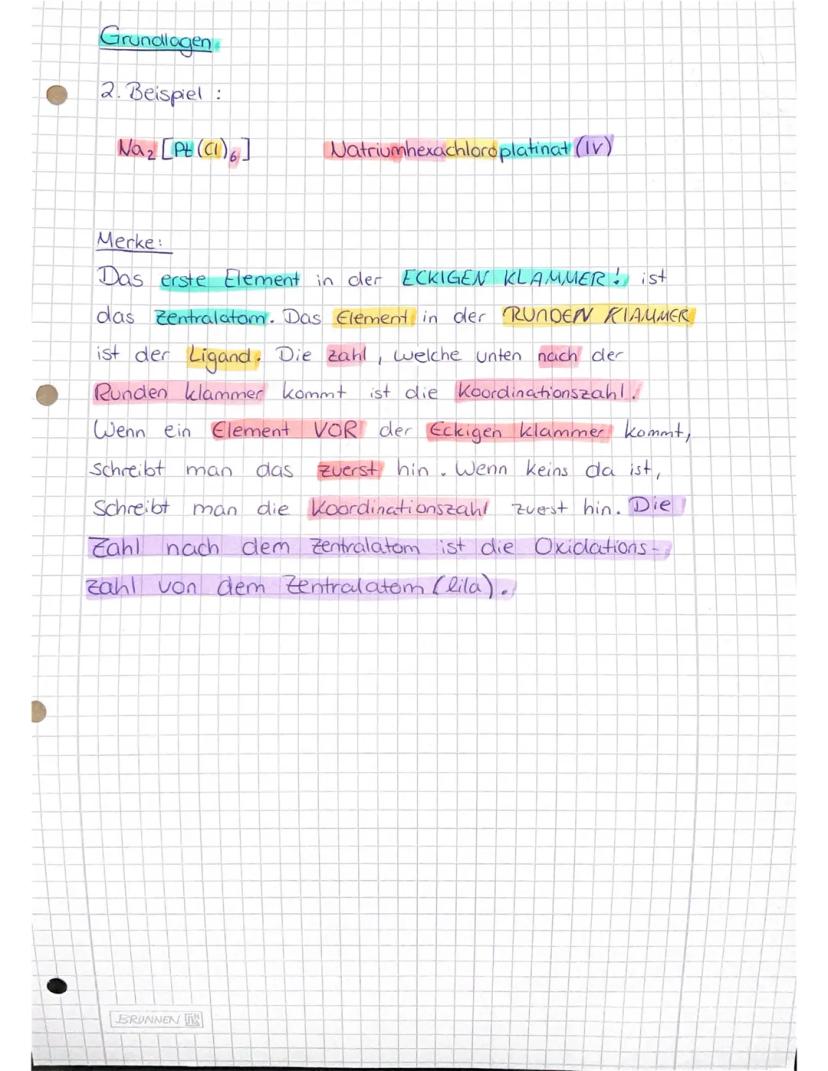 Grundlagen
2. Beispiel :
Na2 [Pt (Cl)6]   Natriumhexachloroplatinat (IV)
Merke:
Das erste Element in der ECKIGEN KLAMMER! ist
das Zentralatom. Das Element in der RUNDEN KlAMMER
ist der Ligand. Die Zahl, welche unten nach der
Runden klammer kommt ist die Koordinationszahl.
Wenn ein Element VOR der Eckigen klammer kommt,
schreibt man das zuerst hin. Wenn keins da ist,
Schreibt man die Koordinationszahl zuerst hin. Die
Zahl nach dem Zentralatom ist die Oxidations-
zahl von dem Zentralatom (lila).
BRUNNEN